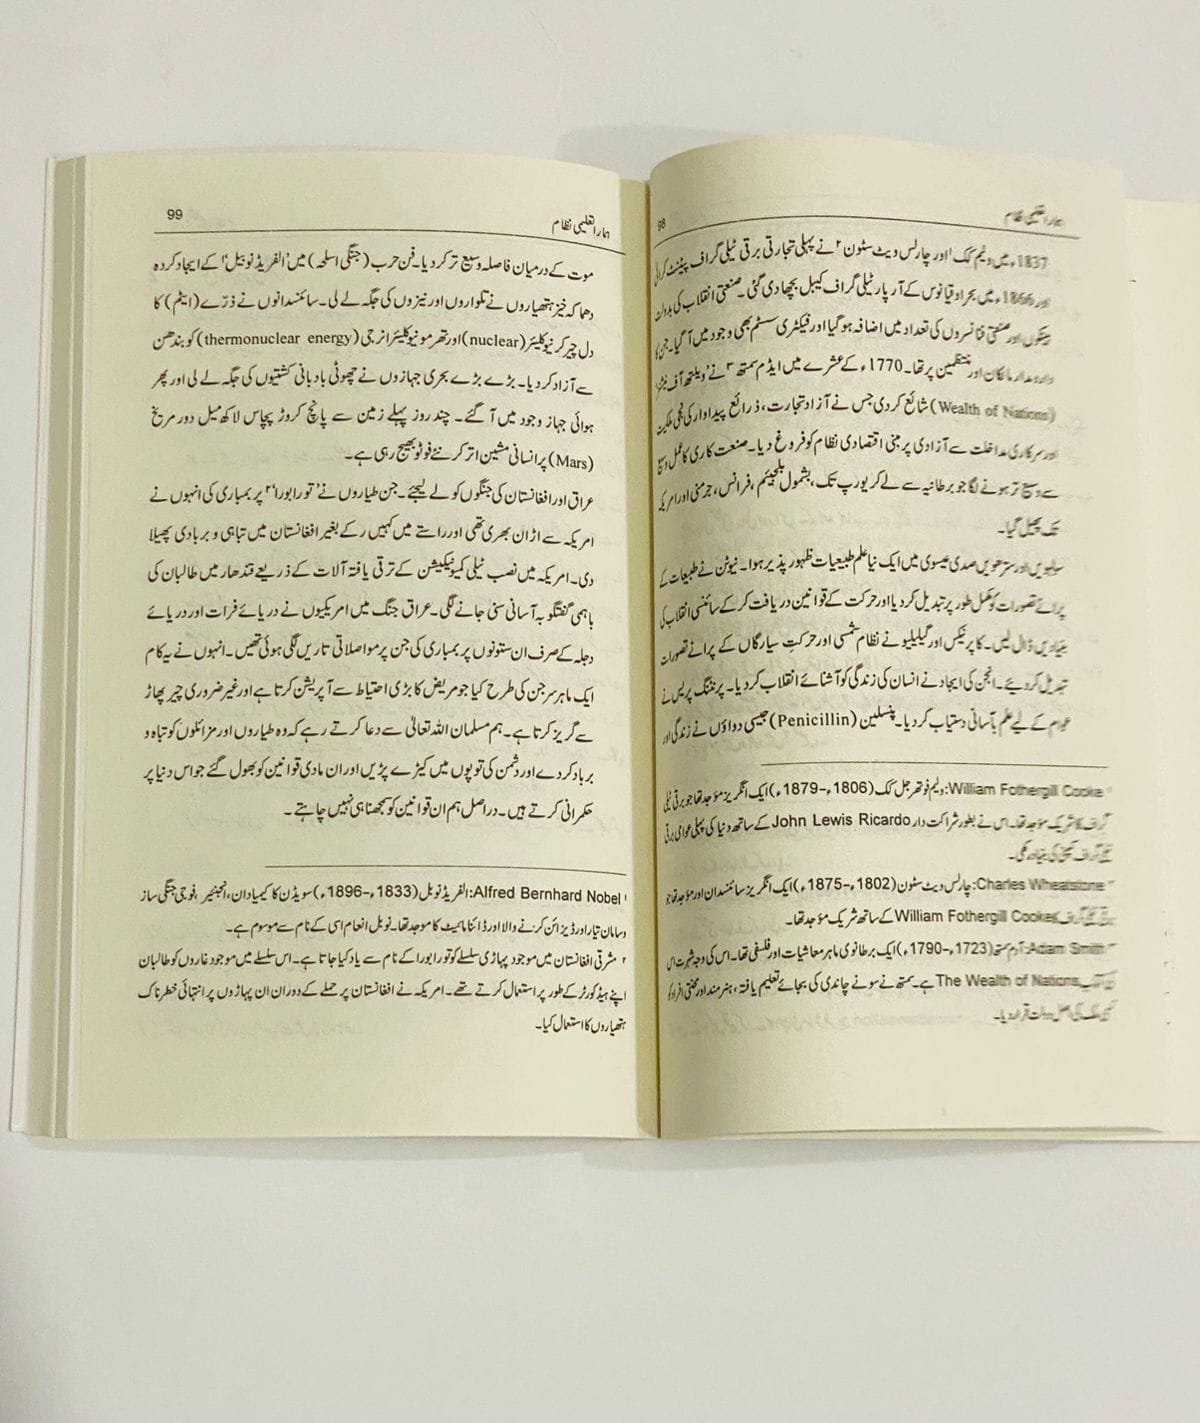 ہمارا تعلیمی نظام
98
1837ء میں ولیم کک۱ اور چارلس ویٹ سٹون۲ نے پہلی تجارتی برقی ٹیلی گراف پیٹنٹ کرائی
اور 1866ء میں بحر اوقیانوس کے آر پار ٹیلی گراف کیبل بچھا دی گئی۔ صنعتی انقلاب کی بدولت
بینکوں اور صنعتی فنانسروں کی تعداد میں اضافہ ہو گیا اور فیکٹری سسٹم بھی وجود میں آ گیا۔ جن کا
دارومدار مالکان اور منتظمین پر تھا۔ 1770ء کے عشرے میں ایڈم سمتھ۳ نے ’ویلتھ آف نیشنز‘
(Wealth of Nations) شائع کر دی جس نے آزاد تجارت، ذرائع پیداوار کی نجی ملکیت
اور سرکاری مداخلت سے آزادی پر مبنی اقتصادی نظام کو فروغ دیا۔ صنعت کاری کا عمل وسیع
سے وسیع تر ہونے لگا جو برطانیہ سے لے کر یورپ تک، بشمول بلجیئم، فرانس، جرمنی اور امریکہ
تک پھیل گیا۔
سولہویں اور سترھویں صدی عیسوی میں ایک نیا علم طبیعیات ظہور پذیر ہوا۔ نیوٹن نے طبیعات کے
پرانے تصورات کو مکمل طور پر تبدیل کر دیا اور حرکت کے قوانین دریافت کر کے سائنسی انقلاب کی
بنیادیں ڈال لیں۔ کاپرنیکس اور گیلیلیو نے نظام شمسی اور حرکتِ سیارگاں کے پرانے تصورات
تبدیل کر دیئے۔ انجن کی ایجاد نے انسان کی زندگی کو آشنائے انقلاب کر دیا۔ پرنٹنگ پریس نے
عوام کے لیے علم بآسانی دستیاب کر دیا۔ پنسلین (Penicillin) جیسی دواؤں نے زندگی اور
۱ William Fothergill Cooke: ولیم فوتھرجل کک (1806ء-1879ء) ایک انگریز موجد تھا جو برقی ٹیلی
گراف کا شریک موجد تھا۔ اس نے بطور شراکت دار John Lewis Ricardo کے ساتھ دنیا کی پہلی عوامی برقی
ٹیلی گراف کمپنی کی بنیاد رکھی۔
۲ Charles Wheatstone: چارلس ویٹ سٹون (1802ء-1875ء) ایک انگریز سائنسدان اور موجد تھا جو
برقی ٹیلی گراف William Fothergill Cooke کے ساتھ شریک موجد تھا۔
۳ Adam Smith: آدم سمتھ (1723ء-1790ء) ایک برطانوی ماہر معاشیات اور فلسفی تھا۔ اس کی وجہ شہرت اس
کی کتاب The Wealth of Nations ہے۔ سمتھ نے سونے چاندی کی بجائے تعلیم یافتہ، ہنرمند اور محنتی افراد کو
کسی ملک کی اصل دولت قرار دیا۔
ہمارا تعلیمی نظام
99
موت کے درمیان فاصلہ وسیع تر کر دیا۔ فن حرب (جنگی اسلحہ) میں ’الفریڈ نوبیل‘۱ کے ایجاد کردہ
دھماکہ خیز ہتھیاروں نے تلواروں اور نیزوں کی جگہ لے لی۔ سائنسدانوں نے ذرّے (ایٹم) کا
دل چیر کر نیوکلیئر (nuclear) اور تھرمونیوکلیئر انرجی (thermonuclear energy) کو بندھن
سے آزاد کر دیا۔ بڑے بڑے بحری جہازوں نے چھوٹی بادبانی کشتیوں کی جگہ لے لی اور پھر
ہوائی جہاز وجود میں آ گئے۔ چند روز پہلے زمین سے پانچ کروڑ پچاس لاکھ میل دور مریخ
(Mars) پر انسانی مشین اتر کر نئے فوٹو بھیج رہی ہے۔
عراق اور افغانستان کی جنگوں کو لے لیجئے۔ جن طیاروں نے ’تورا بورا‘۲ پر بمباری کی انہوں نے
امریکہ سے اڑان بھری تھی اور راستے میں کہیں رکے بغیر افغانستان میں تباہی و بربادی پھیلا
دی۔ امریکہ میں نصب ٹیلی کمیونیکیشن کے ترقی یافتہ آلات کے ذریعے قندھار میں طالبان کی
باہمی گفتگو بہ آسانی سنی جانے لگی۔ عراق جنگ میں امریکیوں نے دریائے فرات اور دریائے
دجلہ کے صرف ان ستونوں پر بمباری کی جن پر مواصلاتی تاریں لگی ہوئی تھیں۔ انہوں نے یہ کام
ایک ماہر سرجن کی طرح کیا جو مریض کا بڑی احتیاط سے آپریشن کرتا ہے اور غیر ضروری چیر پھاڑ
سے گریز کرتا ہے۔ ہم مسلمان اللہ تعالیٰ سے دعا کرتے رہے کہ وہ طیاروں اور میزائلوں کو تباہ و
برباد کر دے اور دشمن کی توپوں میں کیڑے پڑیں اور ان مادی قوانین کو بھول گئے جو اس دنیا پر
حکمرانی کرتے ہیں۔ دراصل ہم ان قوانین کو سمجھنا ہی نہیں چاہتے۔
۱ Alfred Bernhard Nobel: الفریڈ نوبل (1833ء-1896ء) سویڈن کا کیمیا دان، انجنئیر، فوجی جنگی ساز
و سامان تیار اور ڈیزائن کرنے والا اور ڈائنا مائیٹ کا موجد تھا۔ نوبل انعام اسی کے نام سے موسوم ہے۔
۲ مشرقی افغانستان میں موجود پہاڑی سلسلے کو تورا بورا کے نام سے یاد کیا جاتا ہے۔ اس سلسلے میں موجود غاروں کو طالبان
اپنے ہیڈ کوارٹر کے طور پر استعمال کرتے تھے۔ امریکہ نے افغانستان پر حملے کے دوران ان پہاڑوں پر انتہائی خطرناک
ہتھیاروں کا استعمال کیا۔